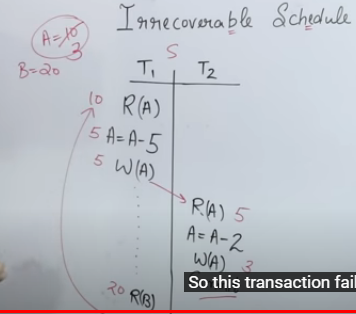 Irrecoverable Schedule
A=10
3
B=20
S
T1 T2
10 R(A)
5 A=A-5
5 W(A)
R(A) 5
A=A-2
W(A) 3
So this transaction fail
20 R(B)